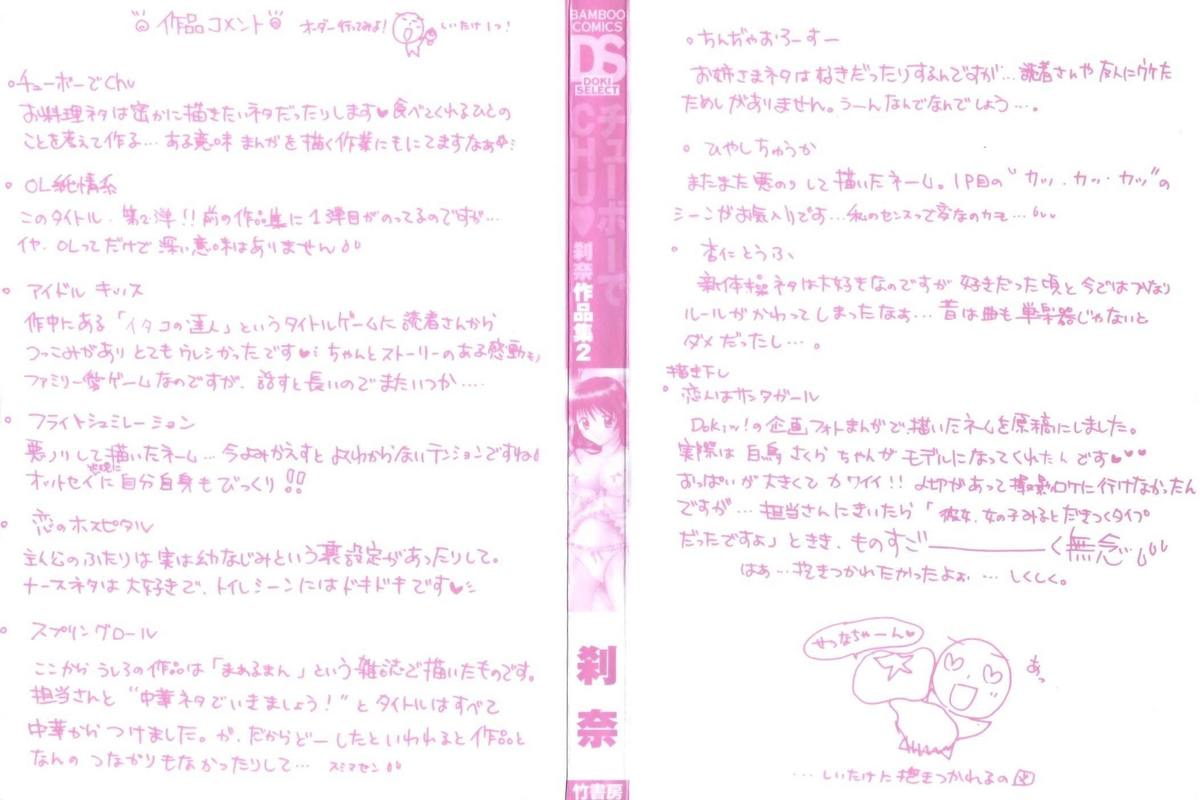 作品コメント
オーダー行ってみよ!
しいたけ1つ!
○チューボーでChu
お料理ネタは密かに描きたいネタだったりします♥食べてくれるひとの
ことを考えて作る…ある意味まんがを描く作業にもにてますなぁ
○ OL純情系
このタイトル、第2弾!!前の作品集に1弾目がのってるのですが…
イヤ、OLってだけで深い意味はありません
○ アイドル キッス
作中にある「イタコの達人」というタイトルゲームに読者さんから
つっこみがありとてもウレシかったです♥ちゃんとストーリーのある感動
ファミリー愛ゲームなのですが、話すと長いのでまたいつか….
○ フライトシュミレーション
悪ノリして描いたネーム…今よみかえすとよくわからないテンションですね
オットセイに自分自身もびっくり!!
○ 恋のホスピタル
主人公のふたりは実は幼なじみという裏設定があったりして。
ナースネタは大好きで、トイレシーンにはドキドキです♥
○ スプリングロール
ここからうしろの作品は「まぁるまん」という雑誌で描いたものです。
担当さんと“中華ネタでいきましょう!”とタイトルはすべて
中華からつけました。が、だからどーしたといわれると作品と
なんのつながりもなかったりして…スミマセン
BAMBOO
COMICS
DS
DOKI
SELECT
チューボーで
CHU♥
刹奈作品集2
刹奈
竹書房
○ ちんぢゃおろーすー
お姉さまネタは好きだったりするんですが…読者さんや友人にウケた
ためしがありません。うーんなんでなんでしょう…。
○ ひやしちゅうか
またまた悪のりして描いたネーム。1P目の“カッ、カッ、カッ”の
シーンがお気入りです…私のセンスって変なのカモ…
○ 杏仁とうふ
新体操ネタは大好きなのですが好きだった頃と今ではかなり
ルールがかわってしまったなぁ…昔は曲も単楽器じゃないと
ダメだったし…。
描き下し
○ 恋人はサンタガール
Doki!の企画フォトまんがで、描いたネームを原稿にしました。
実際は白鳥さくらちゃんがモデルになってくれたんです♥♥♥
おっぱいが大きくてカワイイ!!〆切があって撮影ロケに行けなかったん
ですが…担当さんにきいたら「彼女、女の子みるとだきつくタイプ
だったですよ」ときき、ものすご――――く無念…。
はぁ…抱きつかれたかったよぉ…しくしく。
せつなちゃーん♥
あっ
…しいたけに抱きつかれるの図